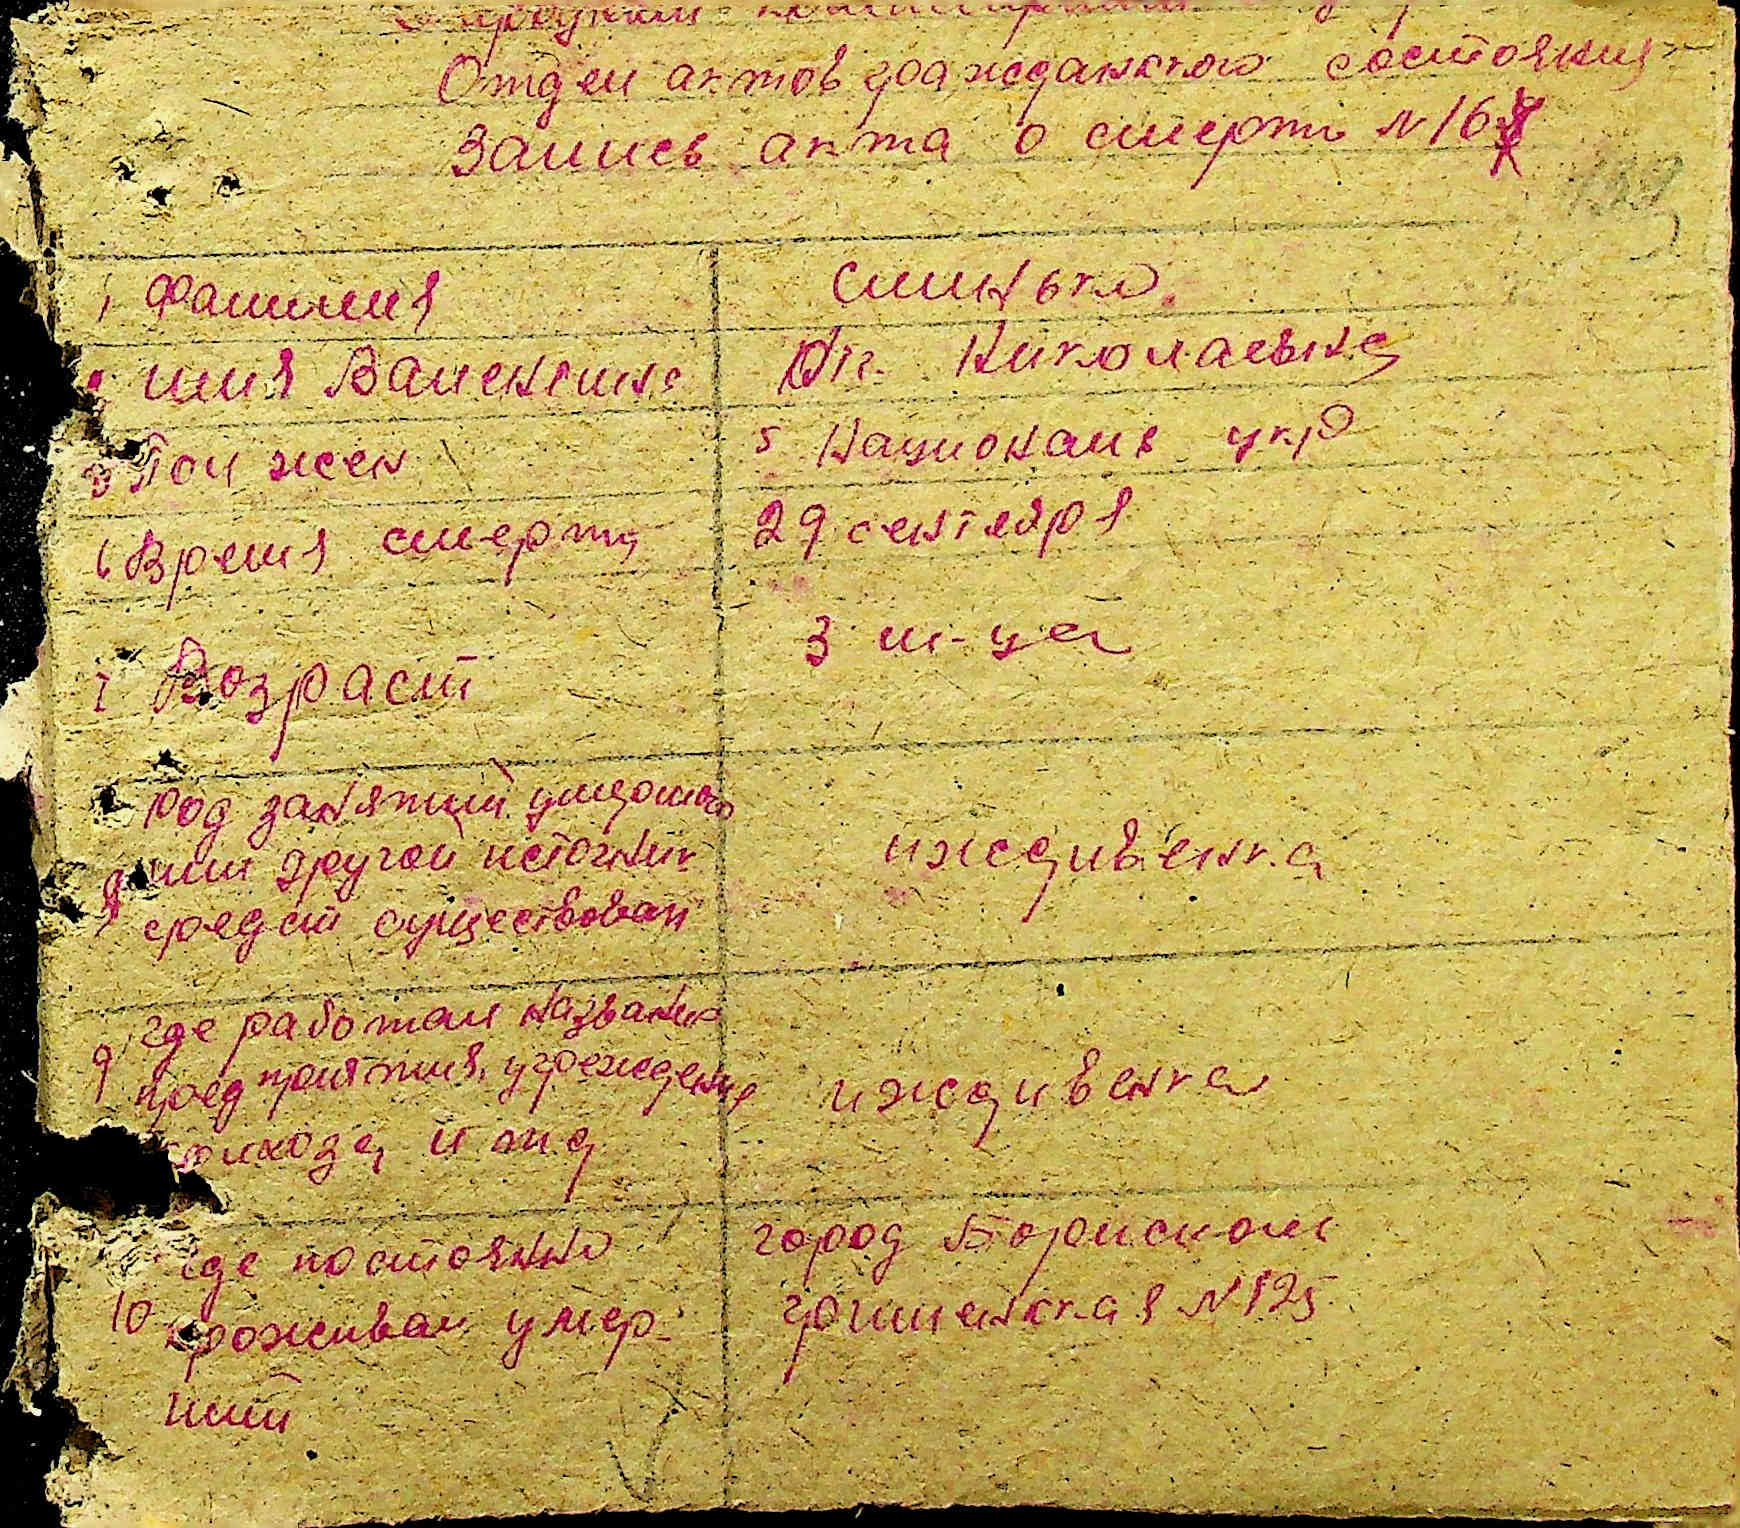 Отдел актов гражданского состояния
Запись акта о смерти N 16
1 Фамилия
Синько.
имя Валентина
От. Николаевна
3 Пол жен
5 Национали укр
6 Время смерти
29 сентября
7 Возраст
3 м-ца
род занятий умершого
или другой источник
средст существован
иждивенка
9 где работал название
предприятия, учреждение
колхоза и тд
иждивенка
10 где постоянно
проживал умер-
ший
город Борисполь
N 125